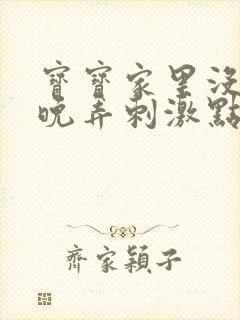 寶寶家里沒
晚弄刺激點
齊家穎子